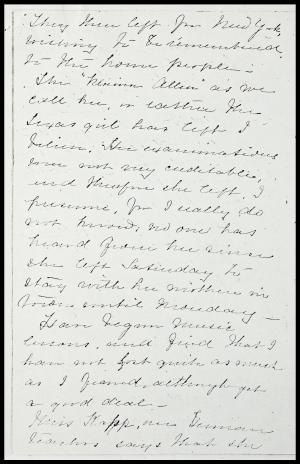 They then left for New York,
wishing to be remembered
to the home people.
The "Minnie Allen" as we
call her, or rather the
Texas girl has left, I
believe. Her examinations
were not very creditable,
and therefore she left, I
presume, for I really do
not know, no one has
heard from her since
she left Saturday to
stay with her mother in
town until Monday —
I am begun music
lessons, and find that I
have not lost quite as much
as I feared, although yet
a good deal.
Miss Kapp, our German
teacher says that she